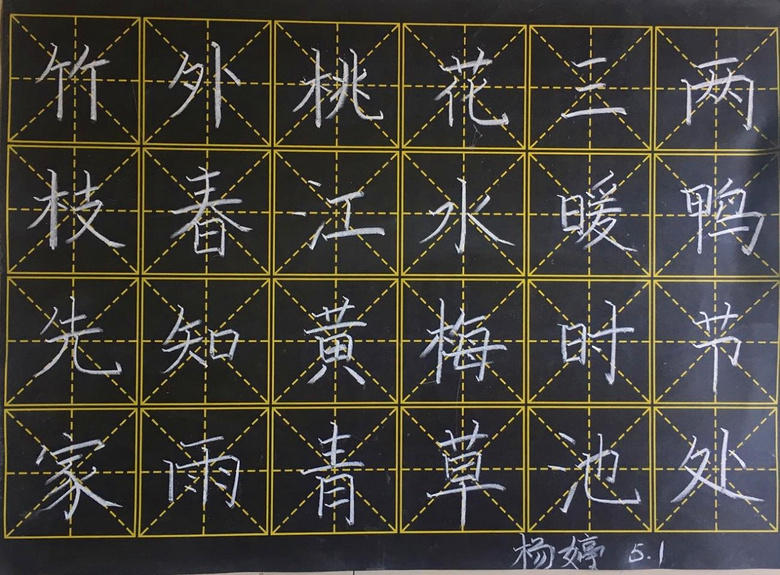 竹外桃花三两
枝春江水暖鸭
先知黄梅时节
家雨青草池处
杨婷 5.1